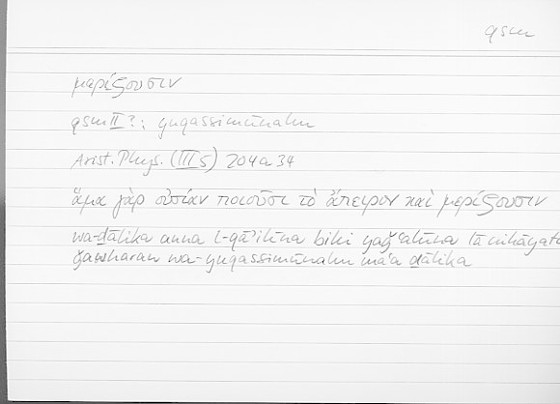 qsm
μερίζουσιν
qsm II ?: yuqassimūnahu
Arist. Phys. (III 5) 204a34
ἅμα γὰρ οὐσίαν ποιοῦσι τὸ ἄπειρον καὶ μερίζουσιν
wa-ḏālika anna l-qāʾilīna bihī yaǧʿalūna lā nihāyata
ǧawharan wa-yuqassimūnahu maʿa ḏālika